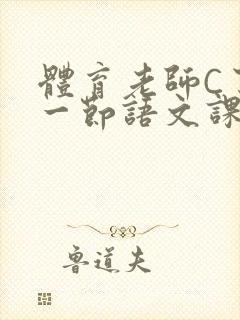 體育老師C
一節語文課
魯道夫